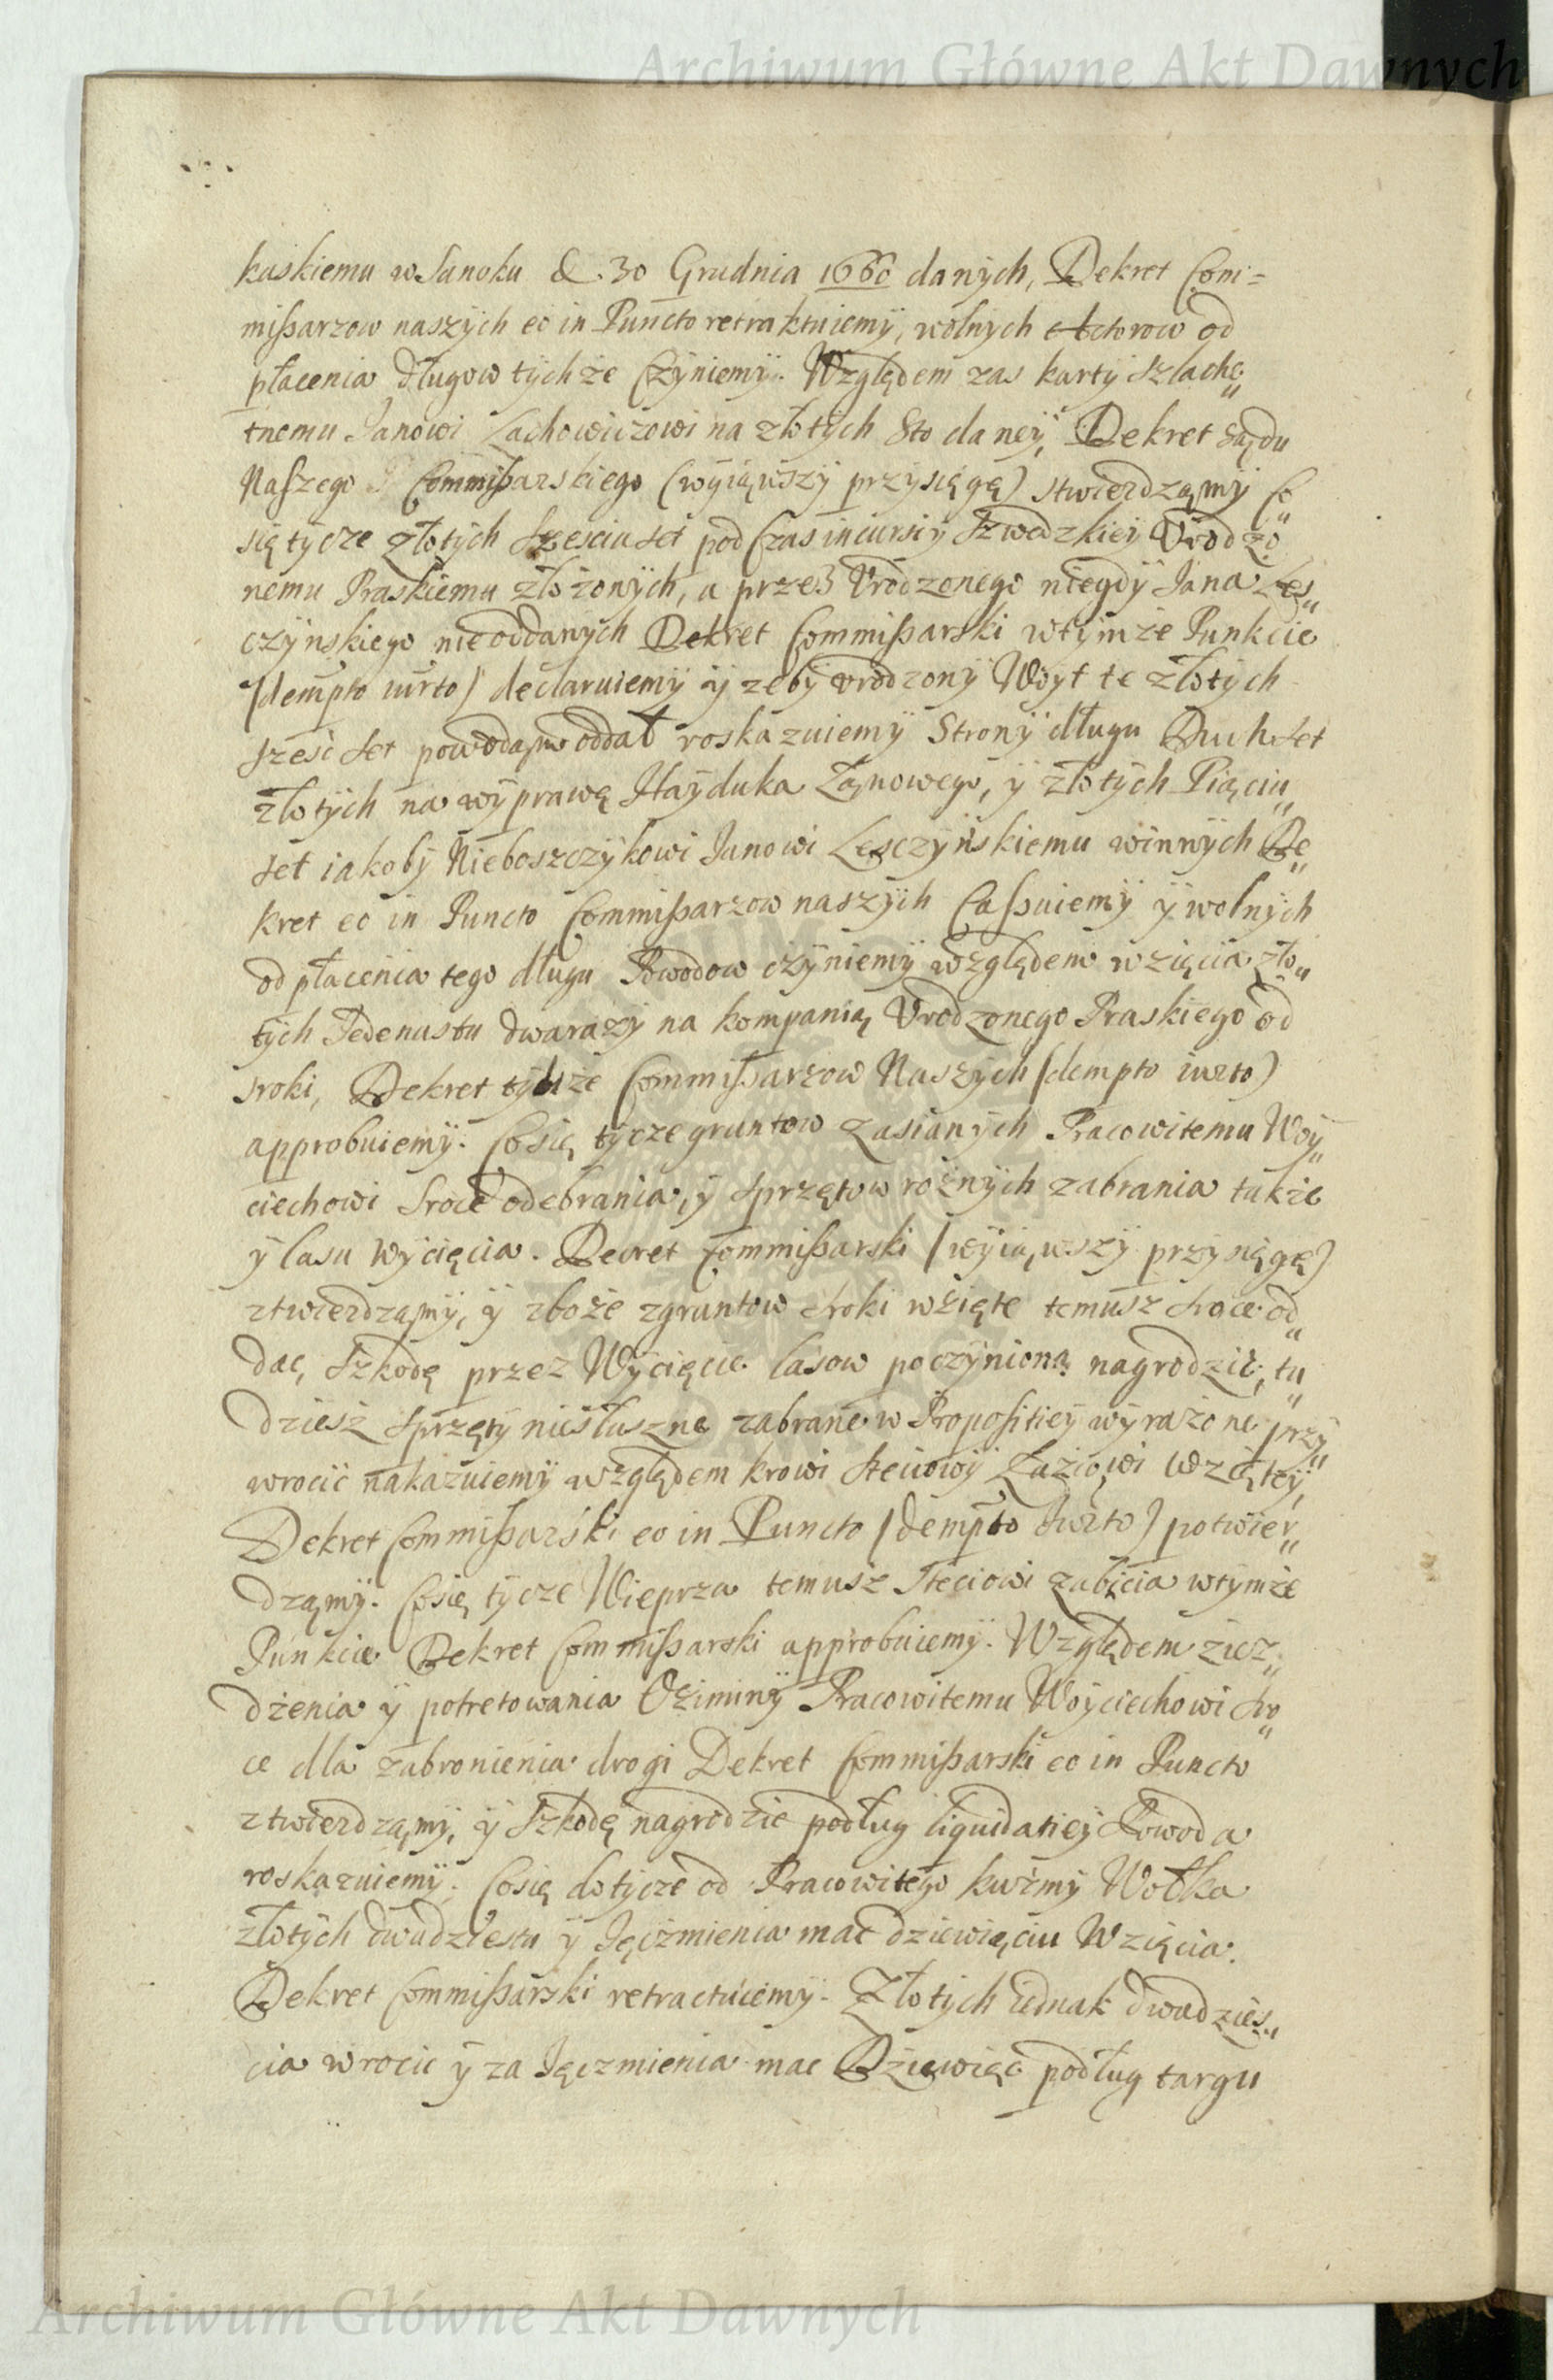 Archiwum Główne Akt Dawnych
kaskiemu w Sanoku d. 30 Grudnia 1660 danÿch, Dekret Com=
mißarzow naszÿch eo in Puncto retraktuiemÿ, wolnÿch Actorow od
płacenia długow tÿchże Czÿniemÿ. Względem zas kartÿ szlache„
tnemu Janowi Zachowiczowi na złotÿch Sto daneÿ, Dekret Sądu
Naszego Commißarskiego (wÿiąwszÿ przÿsięgę) stwierdząmÿ Co„
się tÿcze złotÿch Szesciuset pod Czas incursiÿ Szwedzkieÿ Vrodzo„
nemu Praskiemu złożonÿch, a przez Vrodzonego niegdÿ Jana Les„
czÿnskiego nieoddanÿch Dekret Commißarski wtÿmże Punkcie
(dempto iurto) declaruiemÿ ÿ zebÿ vrodzonÿ Woÿt te złotÿch
szesc set powodąm oddał roskazuiemÿ Stronÿ długu Dwuchset
złotÿch na wÿprawę Haÿduka Łąnowego, ÿ złotÿch Piąciu„
set iakobÿ Nieboszczÿkowi Janowi Lesczÿńskiemu winnÿch De„
kret eo in Puncto Commißarzow naszÿch Caßuiemÿ ÿ wolnÿch
od płacenia tego długu Powodow czÿniemÿ względem wzięcia zło„
tÿch Jedenastu dwarazÿ na kompanią Vrodzonego Praskiego od
Sroki, Dekret tÿchże Commißarzow Naszÿch (dempto iurto)
approbuiemÿ. Co się tÿcze gruntow zasianÿch Pracowitemu Woÿ„
ciechowi Sroce odebrania, ÿ sprzętow rożnÿch zabrania także
ÿ lasu wÿcięcia. Decret Commißarski (wÿiąwszÿ przÿsięgę)
ztwierdząmÿ, ÿ zboże zgruntow Sroki wzięte temusz Sroce od„
dac, szkodę przez Wÿcięcie lasow poczÿnioną nagrodzić, tu„
dziesz sprzętÿ niesłuszne zabrane w Propositieÿ wÿrażone przÿ„
wrocić nakazuiemÿ względem krowi Steciowÿ Zaziowi wzięteÿ,
Dekret Commißarski eo in Puncto (dempto Iurto) potwier„
dząmÿ. Co się tÿcze Wieprza temusz Steciowi zabicia wtÿmże
Punkcie Dekret Commißarski approbuiemÿ. Względem ziez„
dżenia ÿ potretowania Oziminÿ Pracowitemu Woÿciechowi Sro„
ce dla zabronienia drogi Dekret Commißarski eo in Puncto
ztwierdząmÿ, ÿ szkodę nagrodzic podług liquidatieÿ Powoda
roskazuiemÿ. Co się dotÿcze od Pracowitego kuźmÿ Wołka
złotÿch dwudziestu ÿ Jęczmienia mac dziewięciu Wzięcia.
Dekret Commißarski retractuiemÿ. Złotÿch iednak dwadzies„
cia wrocic ÿ za Jęczmienia mac Dziewięć podług targu
Archiwum Główne Akt Dawnych